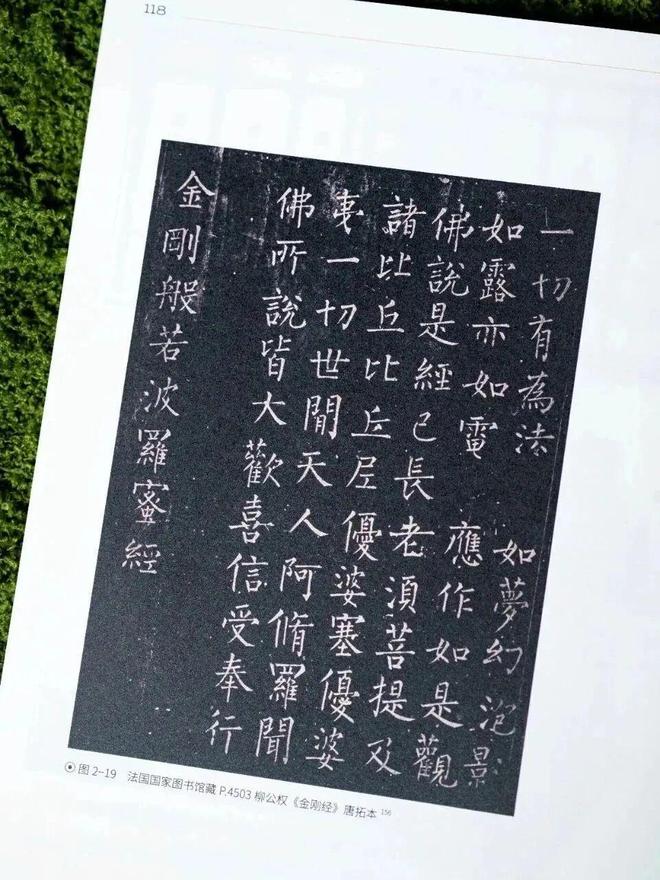 118
一切有為法　如夢幻泡影
如露亦如電　應作如是觀
佛說是經已長老須菩提及
諸比丘比丘尼優婆塞優婆
夷一切世間天人阿脩羅聞
佛所說皆大歡喜信受奉行
金剛般若波羅蜜經
图 2-19 法国国家图书馆藏 P.4503 柳公权《金刚经》唐拓本 156